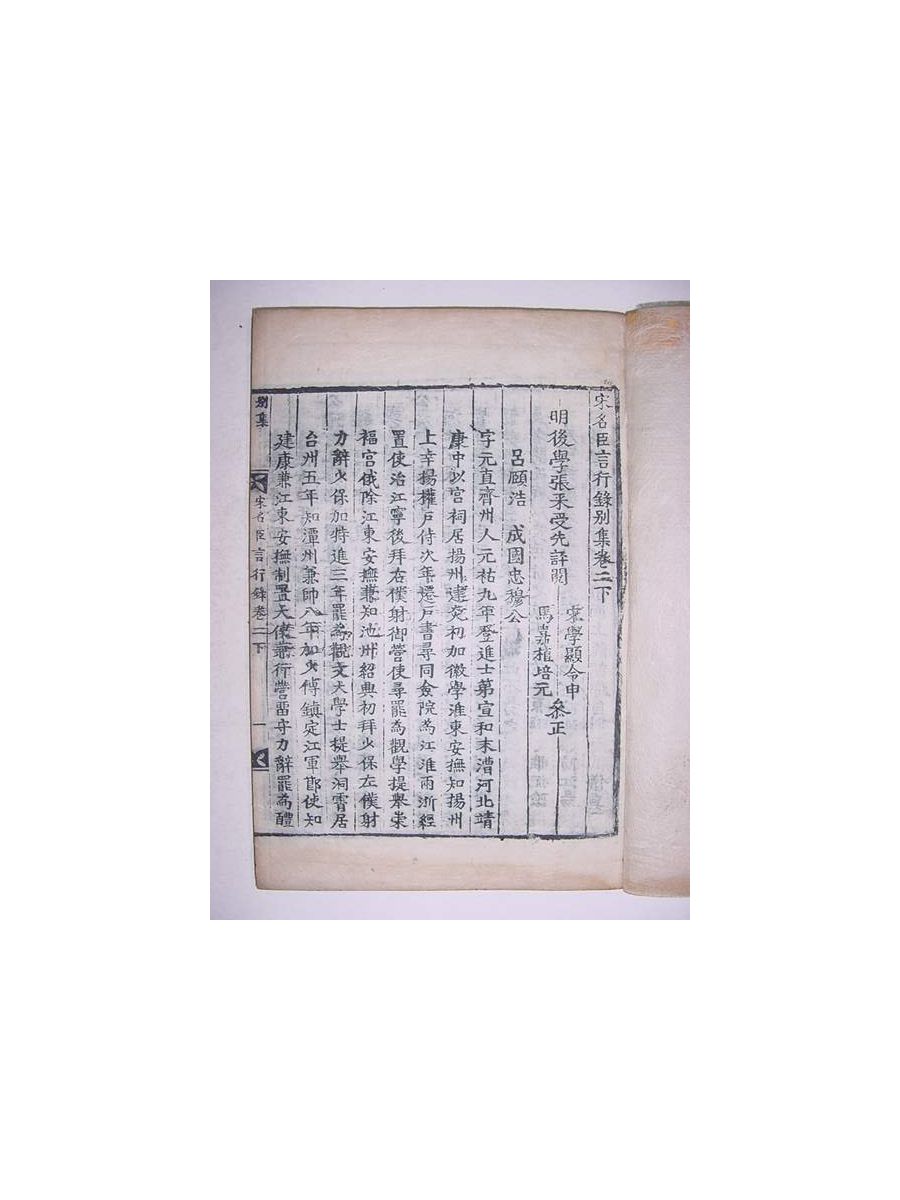 宋名臣言行錄别集卷二下
明後學張采受先評閱
宋學顯令申
馬嘉植培元
叅正
呂頤浩 成國忠穆公
字元直齊州人元祐九年登進士第宣和末漕河北靖
康中以宮祠居揚州建炎初加徽學淮東安撫知揚州
上幸揚權戶侍次年遷戶書尋同僉院為江淮兩浙經
置使治江寧後拜右僕射御營使尋罷為觀學提舉崇
福宮俄除江東安撫兼知池州紹興初拜少保左僕射
力辭少保加特進三年罷為觀文大學士提舉洞霄居
台州五年知潭州兼帥八年加少傅鎮定江軍節使知
建康兼江東安撫制置大使兼行營留守力辭罷為醴
别集
宋名臣言行錄卷二下
一